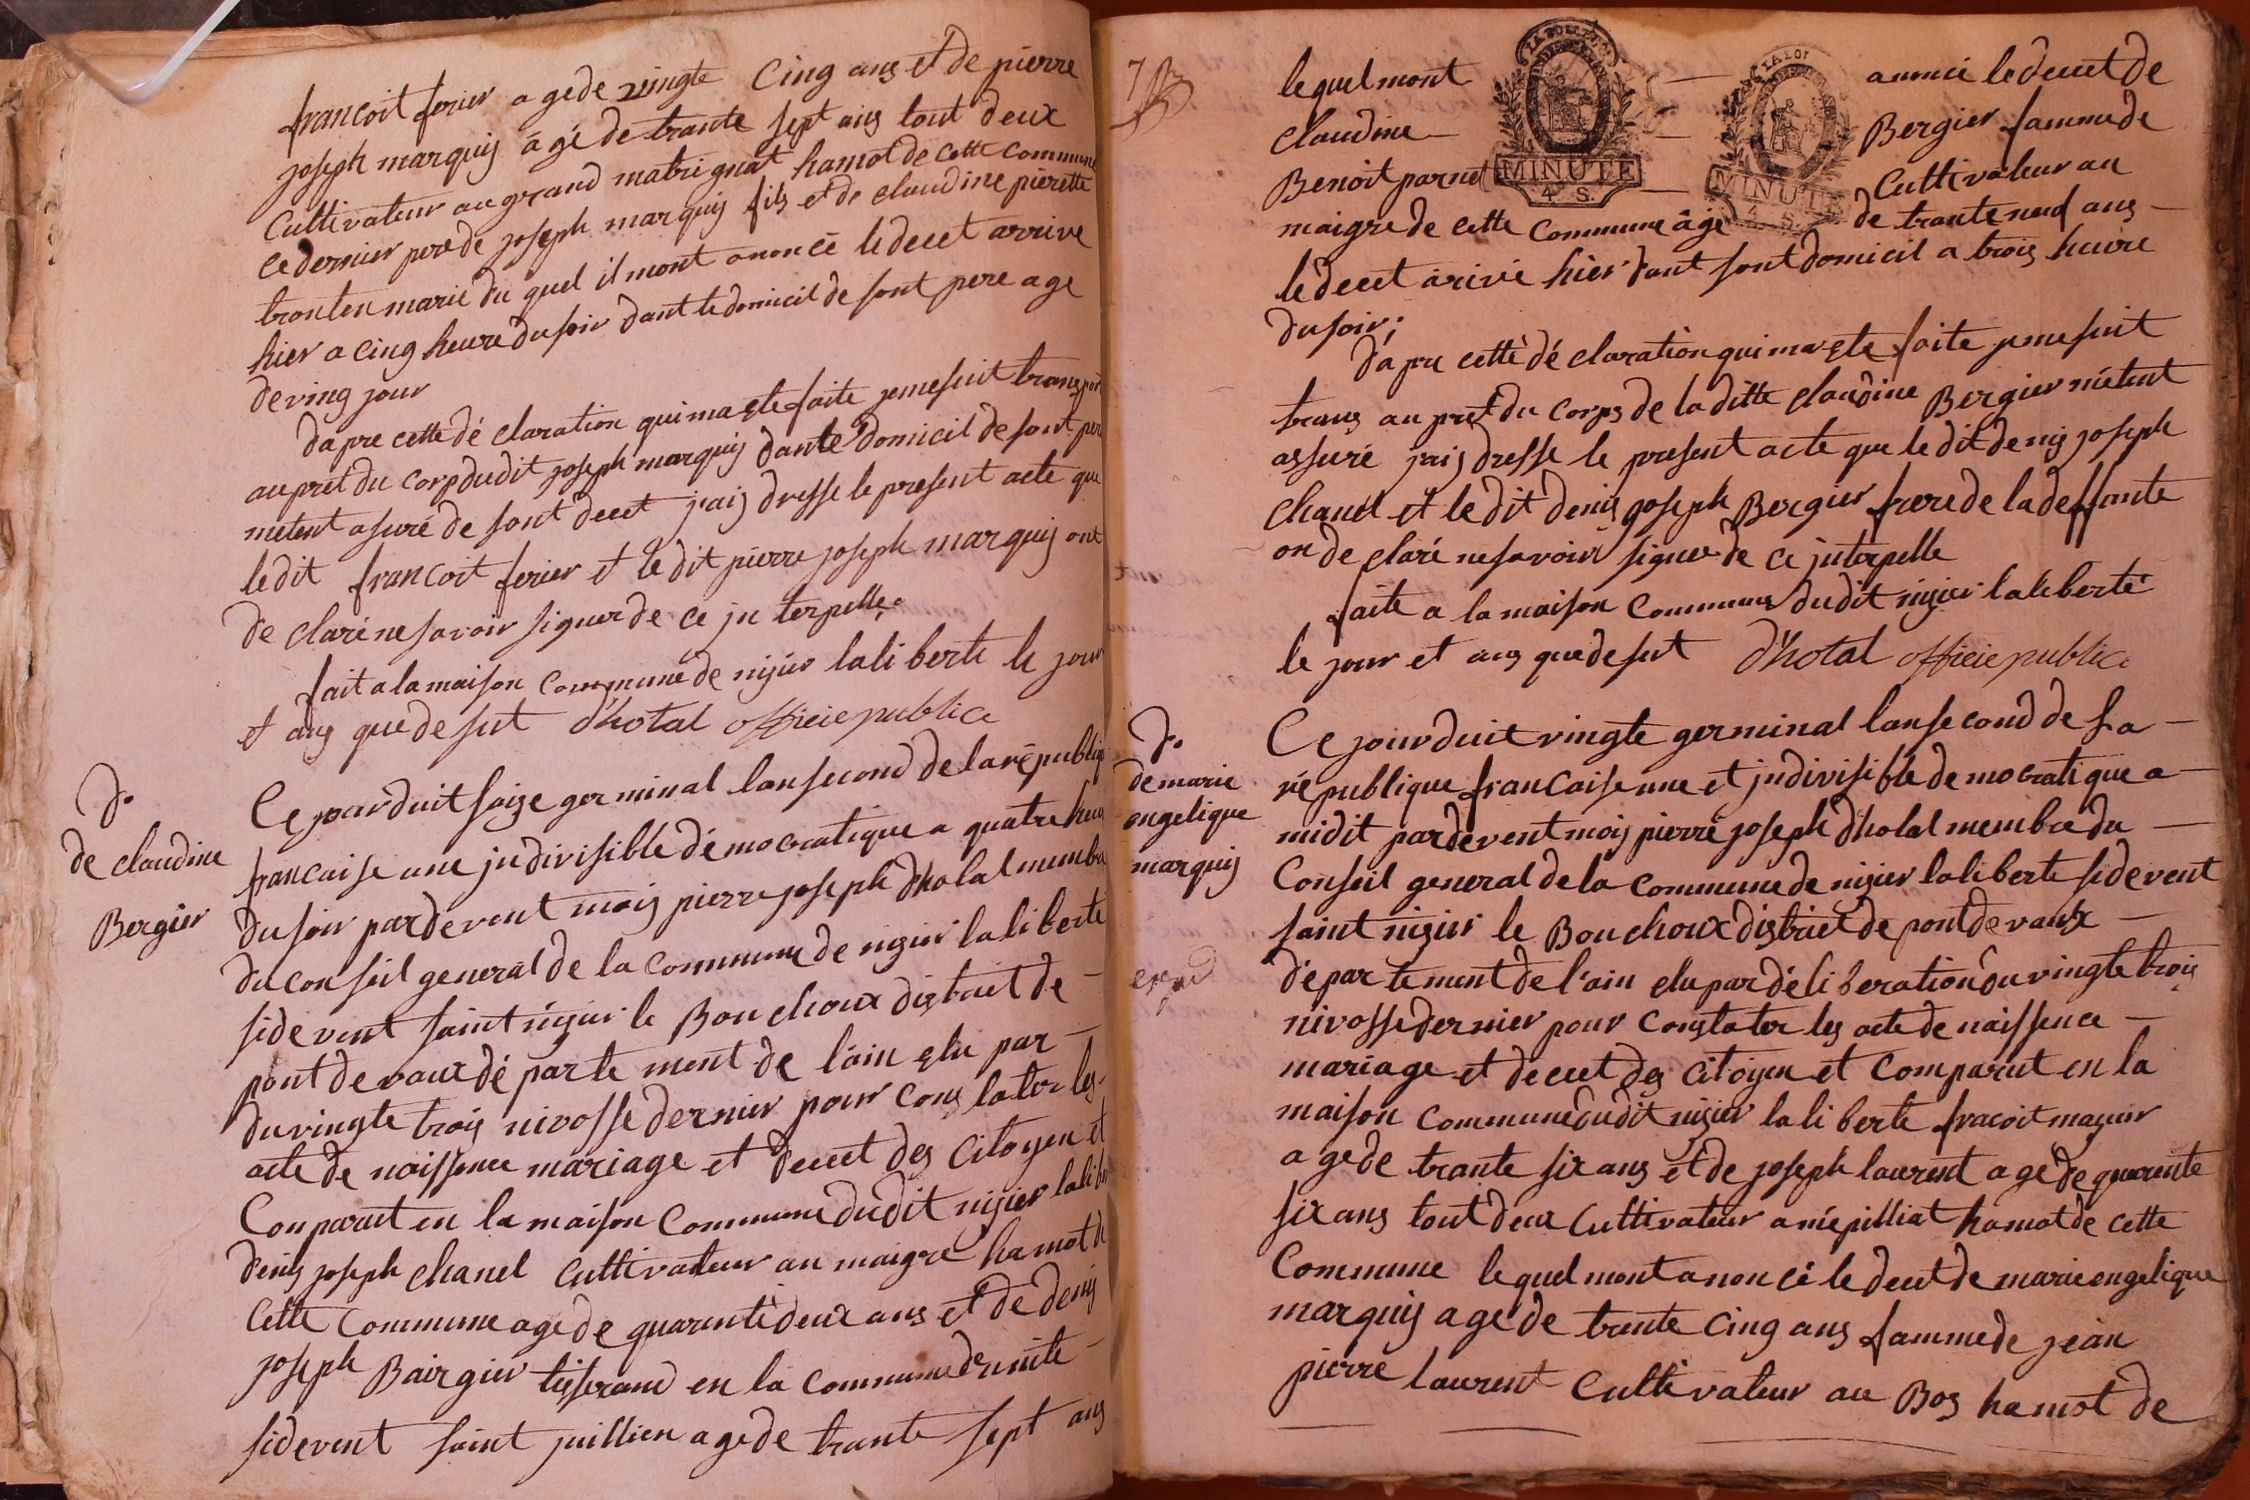 francoit ferier agede vingte Cinq ans et de pierre
joseph marquis âgé de trante sept ans tout deux
Cultivateur au grand matrignat hamot de cette commune
ce dernier pere de joseph marquis fils et de claudine pierette
tronten marié du quel il mont anoncé le decet arrive
hier a cinq heure du soir dant le domicil de sont pere age
de ving jour
dapre cette dé claration qui ma ete faite jeme suit transpor
au pret du corp dudit joseph marquis dant le domicil de sont pere
metent asuré de sont decet jais dresse le present acte que
le dit francoit ferier et le dit pierre joseph marquis ont
de claré ne savoir signer de ce jn terpelle.
fait a la maison commune de nizier laliberte le jour
et ans que de sut d'hotal officie publice
d.
de claudine
Bergier
Ce jourduit saize germinal lan second de la républiq
francaise une jndivisible démocratique a quatre heur
du soir pardevent mois pierre joseph d'holal membre
du conseil general de la commune de nizier laliberté
sidevent saint nizier le Bouchoux distrait de –
pont de vaux dé parte ment de l'ain elu par –
du vingte trois nivosse dernier pour cons tater les
acte de naissence mariage et decet des Citoyen et
Conparut en la maison Commune dudit nizier lalibe
denis joseph chanel Cultivateur au maigre hamot de
Cette Commune age de quarente deux ans et de denis
joseph Bairgier tisserand en la commune dunite –
sidevent saint juillien agede trante sept ans
7
lequel mont anoncé le decet de
Claudine – Bergier famme de
Benoit parnet – Cultivateur au
maigre de cette Commune âgé de trante neuf ans –
le decet arivé hier dant sont domicil a trois heure
du soir;
LA LOI
MINUTE
4 S.
LA LOI
MINUTE
4 S.
d'apre cette dé claration qui ma ete faite jeme suit
trans au pret du corps de la ditte claudine Bergier mètent
assuré jais dresse le present acte que le dit denis joseph
chanel et le dit denis joseph Bergier frere de la deffante
on de claré ne savoir signer de ce jnterpelle
faite a la maison Commune dudit nizier la liberté
le jour et ans que de sut d'hotal officie publice
d.
de marie
angelique
marquis
Ce jourduit vingte germinal lan second de la –
république francaise une et jndivisible democratique a –
midit pardevent mois pierre joseph d'holal membre du –
Conseil general de la commune de nizier laliberte sidevent
saint nizier le Bouchoux distrait de pont de vaux –
dépar tement de l'ain elu par déliberation du vingte trois
nivosse dernier pour Constater les acte de naissence –
mariage et decet des Citoyen et Comparut en la
maison Commune dudit nizier la li berte fracoit maguin
a gede trante six ans et de joseph laurent a ge de quarente
six ans tout deux Cultivateur a mépilliat hamot de cette
Commune lequel mont anon cé le decet de marie angelique
marquis agé de trante Cinq ans famme de jean
pierre laurent Cultivateur au Bos hamot de